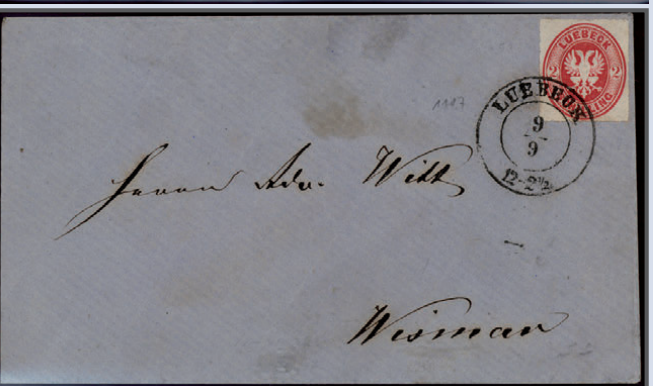 LUEBECK
2 2
SCHILLING
LUEBECK
9
9
12-2½
1117
Herrn Adv. Witt
Wismar